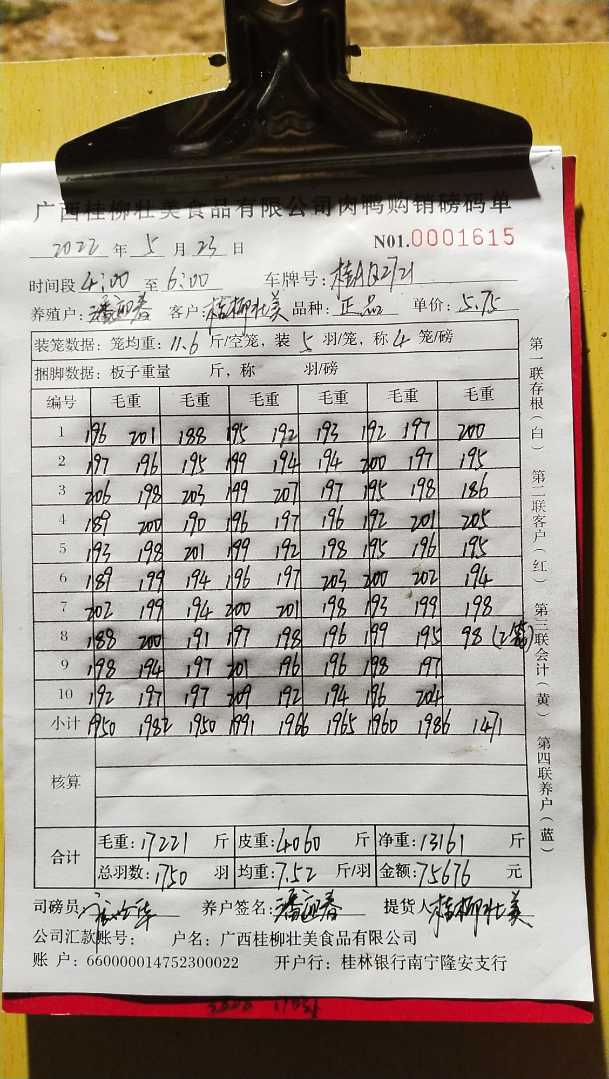 广西桂柳壮美食品有限公司肉鸭购销磅码单
2022 年 5 月 23 日 N01.0001615
时间段 4:00 至 6:00 车牌号:桂AQ2721
养殖户:潘迎春 客户:桂柳壮美 品种:正品 单价:5.75
装笼数据:笼均重:11.6 斤/空笼,装 5 羽/笼,称 4 笼/磅
捆脚数据:板子重量 斤,称 羽/磅
编号 毛重 毛重 毛重 毛重 毛重 毛重
1 196 201 188 195 192 193 192 197 200
2 197 196 195 199 194 194 200 197 195
3 206 198 203 199 207 197 195 198 186
4 189 200 190 196 197 196 192 201 205
5 193 198 201 199 192 198 195 196 195
6 189 199 194 196 197 203 200 202 194
7 202 199 194 200 201 198 193 199 198
8 188 200 191 197 198 196 199 195 98 (2笼)
9 198 194 197 201 196 196 198 197
10 192 197 197 209 192 194 196 204
小计 1950 1982 1950 1991 1966 1965 1960 1986 1471
核算
合计 毛重:17221 斤 皮重:4060 斤 净重:13161 斤
总羽数:1750 羽 均重:7.52 斤/羽 金额:75676 元
司磅员 养户签名:潘迎春 提货人 桂柳壮美
公司汇款账号: 户名:广西桂柳壮美食品有限公司
账 户:660000014752300022 开户行:桂林银行南宁隆安支行
第一联存根(白) 第二联客户(红) 第三联会计(黄) 第四联养户(蓝)